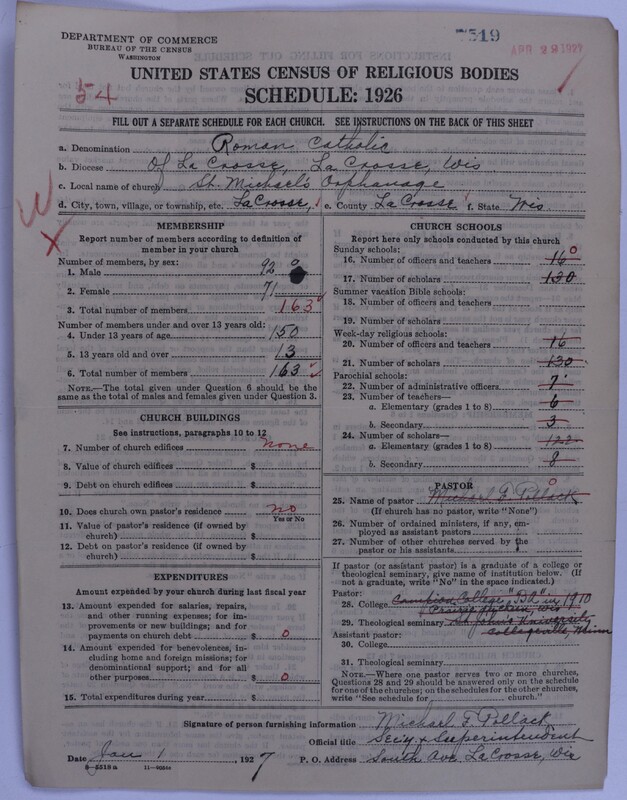 DEPARTMENT OF COMMERCE
BUREAU OF THE CENSUS
WASHINGTON
7519
APR 29 1927
UNITED STATES CENSUS OF RELIGIOUS BODIES
SCHEDULE: 1926
54
FILL OUT A SEPARATE SCHEDULE FOR EACH CHURCH. SEE INSTRUCTIONS ON THE BACK OF THIS SHEET
a. Denomination Roman Catholic
b. Diocese Of La Crosse, La Crosse, Wis
c. Local name of church St. Michael's Orphanage
d. City, town, village, or township, etc. La Crosse, e. County La Crosse f. State Wis
MEMBERSHIP
Report number of members according to definition of
member in your church
Number of members, by sex:
1. Male 92
2. Female 71
3. Total number of members 163
Number of members under and over 13 years old:
4. Under 13 years of age 150
5. 13 years old and over 13
6. Total number of members 163
NOTE.—The total given under Question 6 should be the
same as the total of males and females given under Question 3.
CHURCH BUILDINGS
See instructions, paragraphs 10 to 12
7. Number of church edifices none
8. Value of church edifices $
9. Debt on church edifices $
10. Does church own pastor's residence no
Yes or No
11. Value of pastor's residence (if owned by
church) $
12. Debt on pastor's residence (if owned by
church) $
EXPENDITURES
Amount expended by your church during last fiscal year
13. Amount expended for salaries, repairs,
and other running expenses; for im-
provements or new buildings; and for
payments on church debt $ 0
14. Amount expended for benevolences,
including home and foreign missions; for
denominational support; and for all
other purposes $ 0
15. Total expenditures during year $
CHURCH SCHOOLS
Report here only schools conducted by this church
Sunday schools:
16. Number of officers and teachers 16 0
17. Number of scholars 130
Summer vacation Bible schools:
18. Number of officers and teachers
19. Number of scholars
Week-day religious schools:
20. Number of officers and teachers 16
21. Number of scholars 130
Parochial schools:
22. Number of administrative officers 7
23. Number of teachers—
a. Elementary (grades 1 to 8) 6
b. Secondary 3
24. Number of scholars—
a. Elementary (grades 1 to 8) 122
b. Secondary 8
PASTOR
25. Name of pastor Michael F. Pollack 0
(If church has no pastor, write "None")
26. Number of ordained ministers, if any, em-
ployed as assistant pastors
27. Number of other churches served by the
pastor or his assistants
If pastor (or assistant pastor) is a graduate of a college or
theological seminary, give name of institution below. (If
not a graduate, write "No" in the space indicated.)
Pastor:
28. College Campion College, "BA" in 1910
Prairie du Chien, Wis
29. Theological seminary St. John's University
Collegeville, Minn
Assistant pastor:
30. College
31. Theological seminary
NOTE.—Where one pastor serves two or more churches,
Questions 28 and 29 should be answered only on the schedule
for one of the churches; on the schedules for the other churches,
write "See schedule for church."
Signature of person furnishing information Michael F. Pollack
Official title Sec'y & Superintendent
Date Jan 1 1927 P. O. Address South Ave. La Crosse, Wis
8—5518a